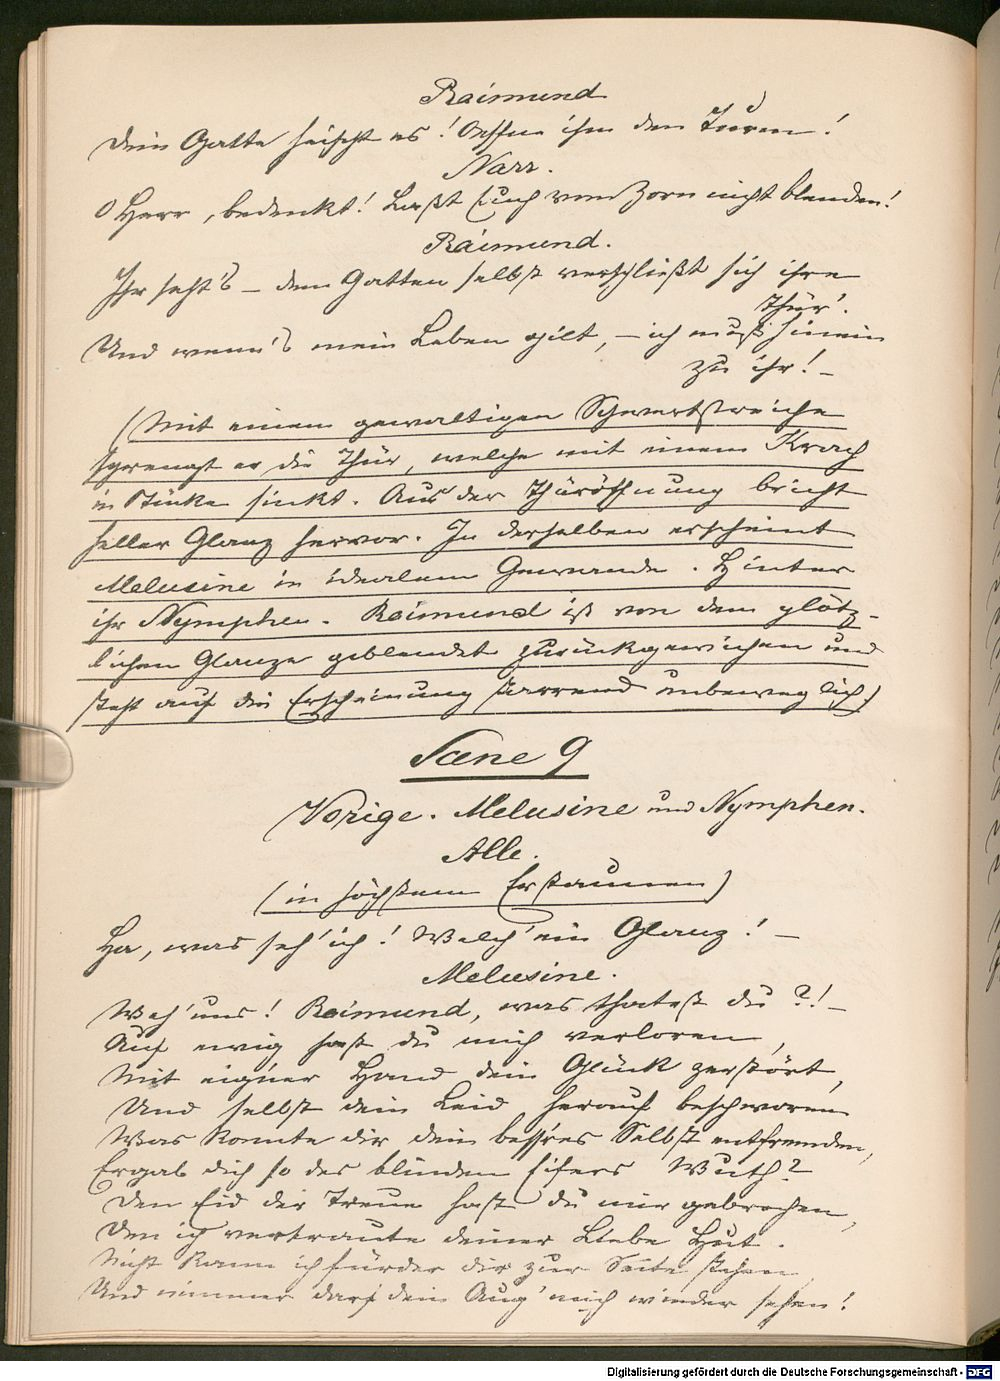 Raimund
Dein Gatte heischt es! Oeffne ihm den Turm!
Narr.
O Herr, bedenkt! Laßt Euch vom Zorn nicht blenden!
Raimund.
Ihr seht's – dem Gatten selbst verschließt sich ihre
Thür'.
Und wenn's mein Leben gilt, – ich muß hinein
zu ihr! –
(Mit einem gewaltigen Schwertstreiche
sprengt er die Thür, welche mit einem Krach
in Stücke sinkt. Aus der Thüröffnung bricht
heller Glanz hervor. In derselben erscheint
Melusine in idealem Gewande. Hinter
ihr Nymphen. Raimund ist von dem plötz-
lichen Glanze geblendet zurückgewichen und
steht auf die Erscheinung starrend unbeweglich)
Scene 9
Vorige. Melusine und Nymphen.
Alle.
(in höchstem Erstaunen)
Ha, was seh' ich! Welch' ein Glanz! –
Melusine.
Weh' uns! Raimund, was thatest du?! –
Auf ewig hast du mich verloren,
Mit eigner Hand dein Glück zerstört,
Und selbst dein Leid herauf beschworen
Was konnte dir dein bess'res Selbst entfremden,
Ergab dich so des blinden Eifers Wuth?
Den Eid der Treue hast du mir gebrochen,
Den ich vertraute deiner Liebe Hut.
Nicht kann ich fürder dir zur Seite stehen,
Und nimmer darf dein Aug' mich wieder sehen!
Digitalisierung gefördert durch die Deutsche Forschungsgemeinschaft - DFG